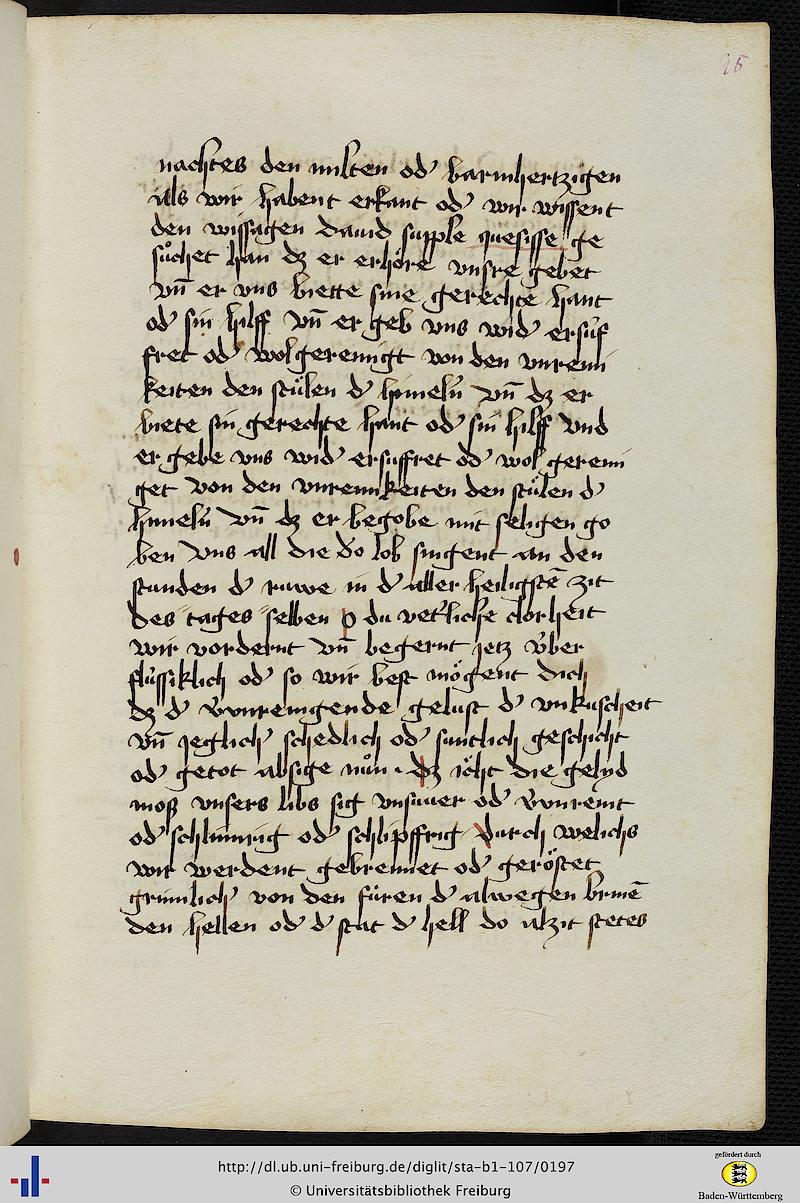 15
nachtes den milten od' barmhertzigen
als wir habent erkant od' wir wissent
den wissagen dauid supple quesisse ge
suͦchet han dz er erhöre vnsre gebet
vn̄ er vns biette sine gerechte hant
od' sin hilff vn̄ er geb vns wid' ersúf
fret od' wolgereinigt von den vnreini
keiten den stuͤlen d' himeln vn̄ dz er
biete sin gerechte hant od' sin hilff vnd
er gebe vns wid' ersuffret od' wol gereini
get von den vnreinikeiten den stuͤlen d'
himeln vn̄ dz er begobe mit seligen go
ben vns all die do lob singent an den
stunden d' ruwe in d' aller heiligstē zit
des tages selben O du vetliche clorheit
wir vordernt vn̄ begernt jetz v́ber
flússiklich od' so wir best mögent dich
dz d' vnreingende gelust d' vnkuscheit
vn̄ jeglich' schedlich od' suntlich geschicht
od' getot absige nuͦn · dz icht die gelyd
moß vnsers libs sig vnsuuer od' vnreint
od' schlimrig od' schlipffrig durch welichs
wir werdent gebrennet od' geröstet
grimlich' von den fúren d' alwegen brinē
den hellen od' d' stat d' hell do alzit stetes
http://dl.ub.uni-freiburg.de/diglit/sta-b1-107/0197
© Universitätsbibliothek Freiburg
gefördert durch
Baden-Württemberg